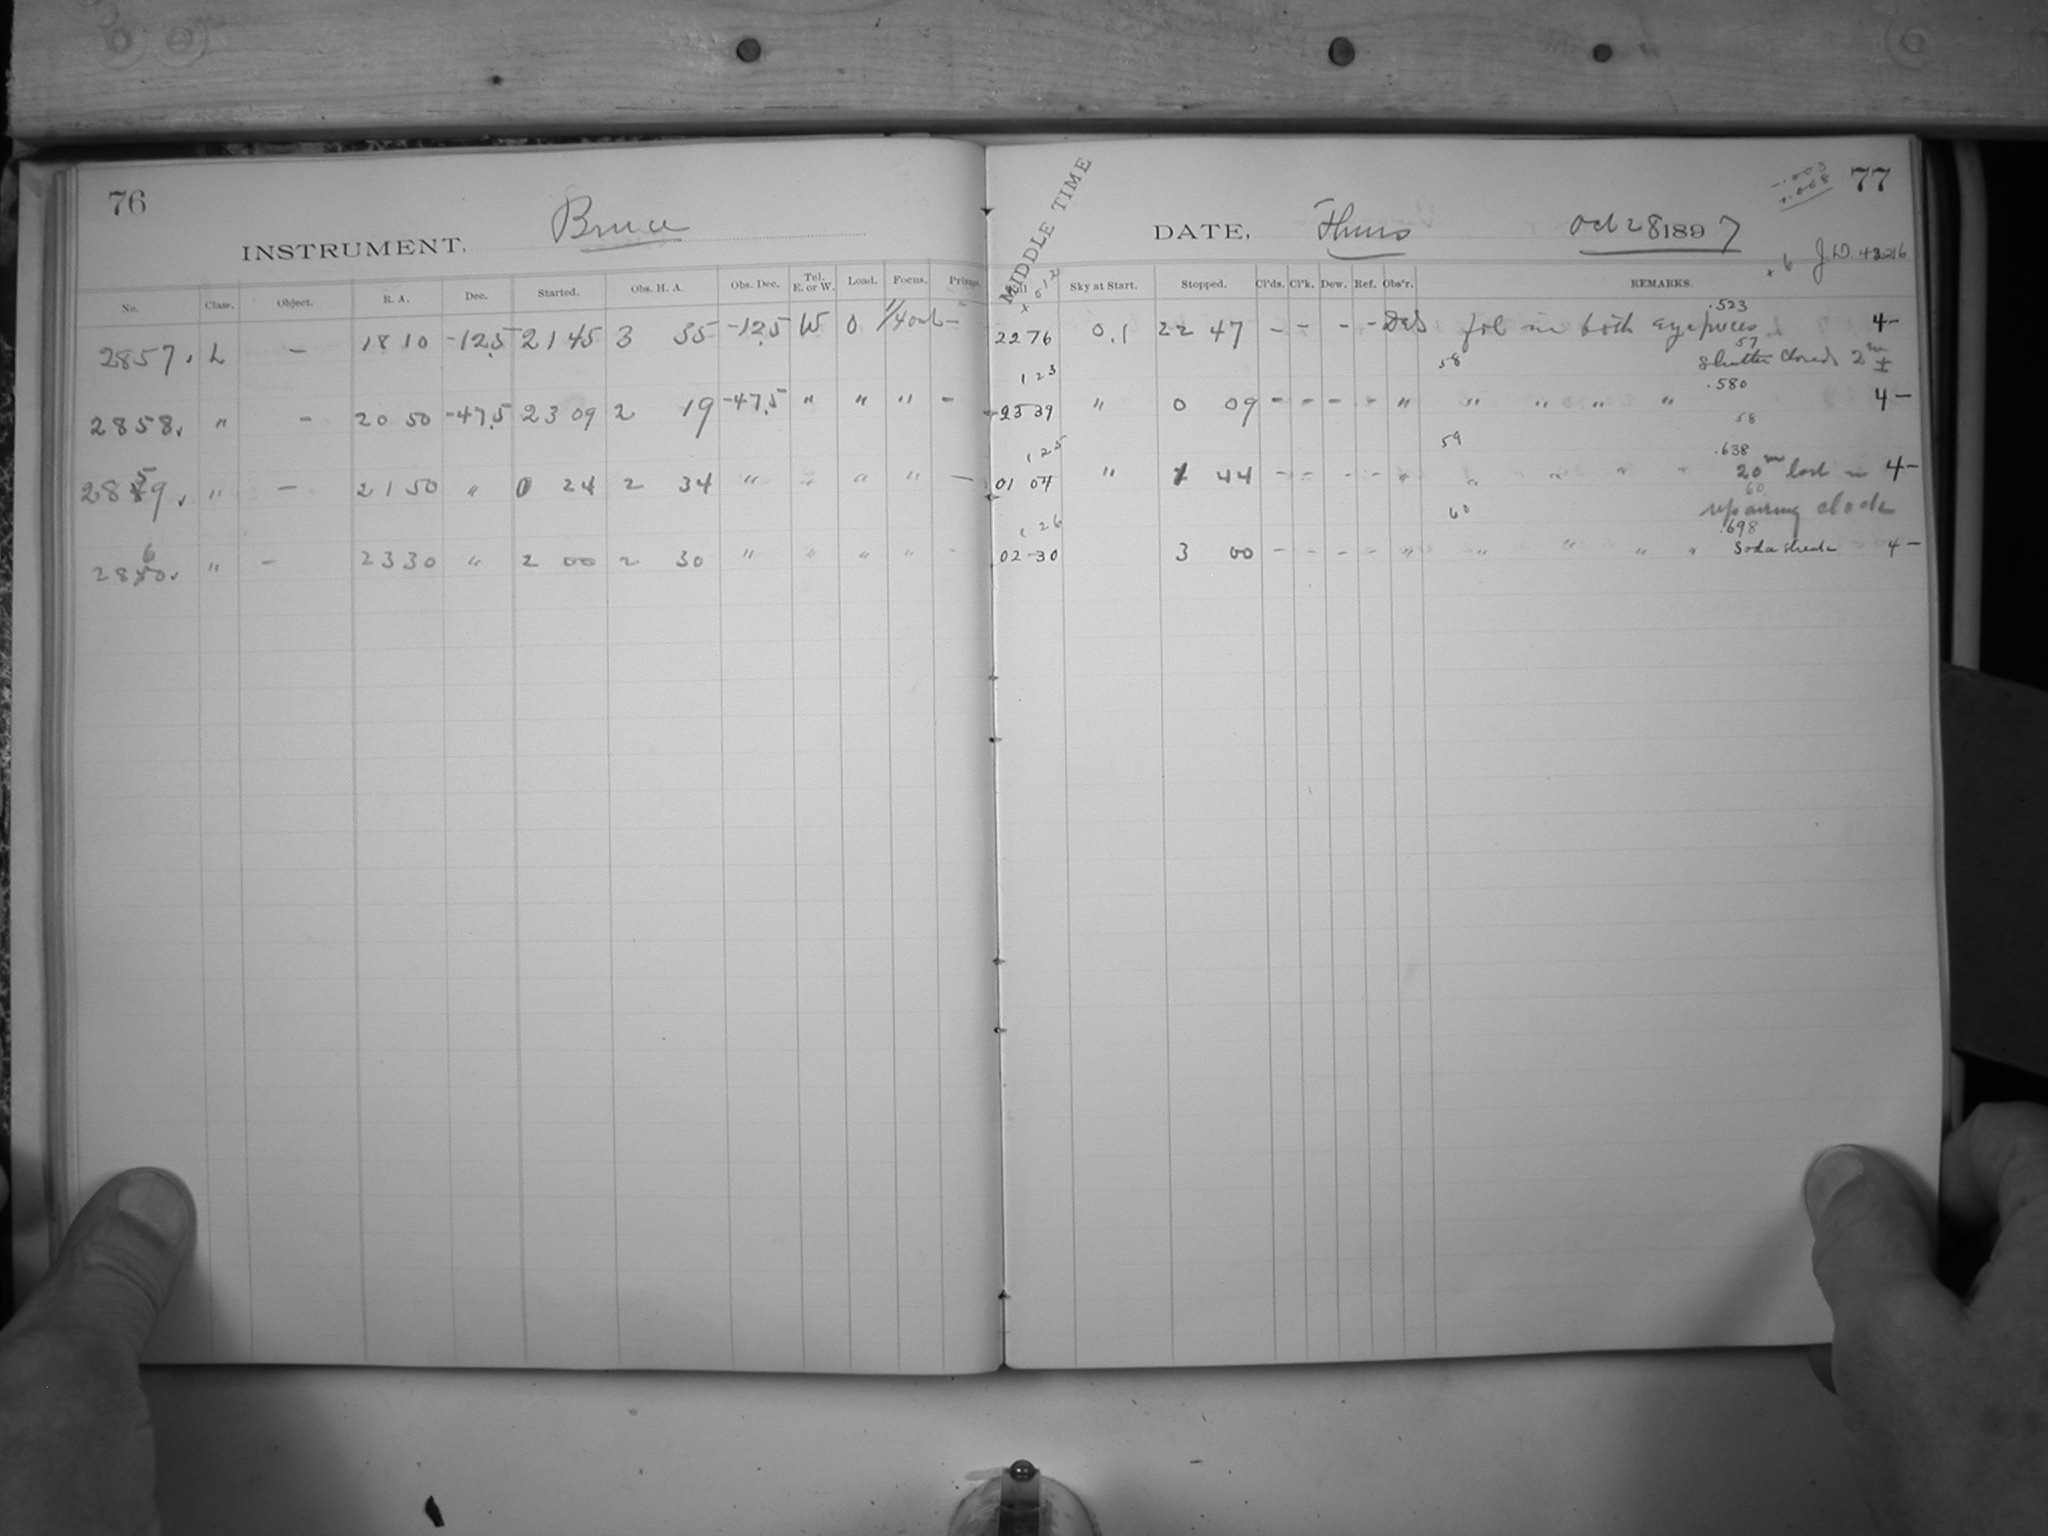 76
INSTRUMENT, Bruce
No. Class. Object. R. A. Dec. Started. Obs. H. A. Obs. Dec. Tel. E. or W. Load. Focus.
2857. L - 18 10 -12.5 21 45 3 35 -12.5 W 0 1/4 out -
2858. " - 20 50 -47.5 23 09 2 19 -47.5 " " " -
2859. " - 21 50 " 0 24 2 34 " " " " -
2860. " - 23 30 " 2 00 2 30 " " " " -
-.003
+.008
77
MIDDLE TIME
DATE, Thurs Oct 28 1897
+6 J.D. 4226
Sky at Start. Stopped. Cl'ds. Cl'k. Dew. Ref. Obs'r. REMARKS.
.523
2276 0.1 22 47 - - - - fol in both eyepieces 4-
57
58 Shutter closed 2m ±
123
.580
2339 " 0 09 - - - - " " " " " 4-
58
59
125
.638
01 04 " 1 44 - - - - " " " " " 20m lost in 4-
60
60 repairing clock
126
.698
02-30 3 00 - - - - " " " " " Soda streak 4-